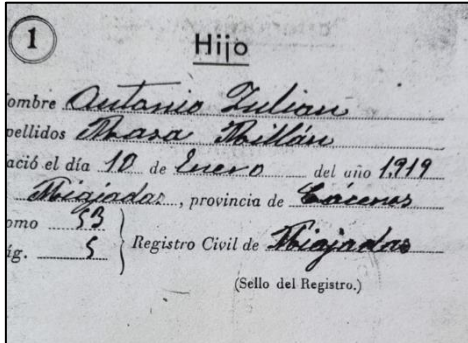 1
Hijo
ombre Antonio Julian
pellidos Masa Millán
ació el día 10 de Enero del año 1919
Miajadas, provincia de Cáceres
omo 53
ág. 5 } Registro Civil de Miajadas
(Sello del Registro.)